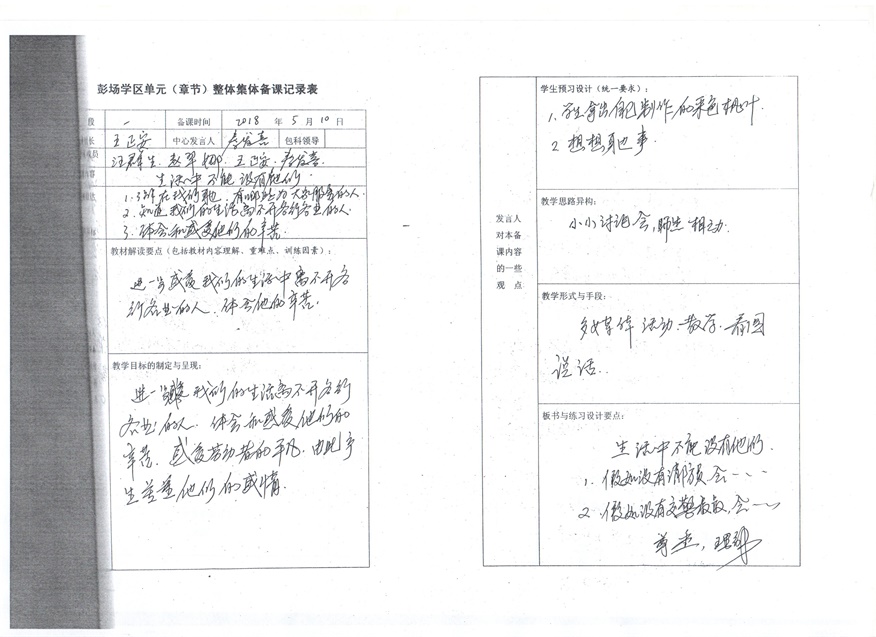 彭场学区单元（章节）整体集体备课记录表
段 一 备课时间 2018 年 5 月 10 日
长 王正安 中心发言人 李发喜 包科领导
成员 汪群生 赵翠娜 王正安 李发喜
内容 生活中不能没有他们
有哪些为大家服务的人.
2. 知道我们的生活离不开各行各业的人.
3. 体会和感受他们的辛苦.
教材解读要点（包括教材内容理解、重难点、训练因素）：
进一步感受我们的生活中离不开各
行各业的人、体会他的辛苦.
教学目标的制定与呈现：
进一步 我们的生活离不开各行
各业的人. 体会和感受他们的
辛苦. 感受劳动者的平凡. 由此产
生尊重他们的感情.
发言人
对本备
课内容
的一些
观 点
学生预习设计（统一要求）：
1. 学生拿出自己制作的采色树叶.
2 想想
教学思路异构：
小小讨论会，师生相互动.
教学形式与手段：
多媒体 活动教学. 看图
说话..
板书与练习设计要点：
生活中不能没有他们.
1. 假如没有清 会……
2. 假如没有交警 会……
尊重，理解